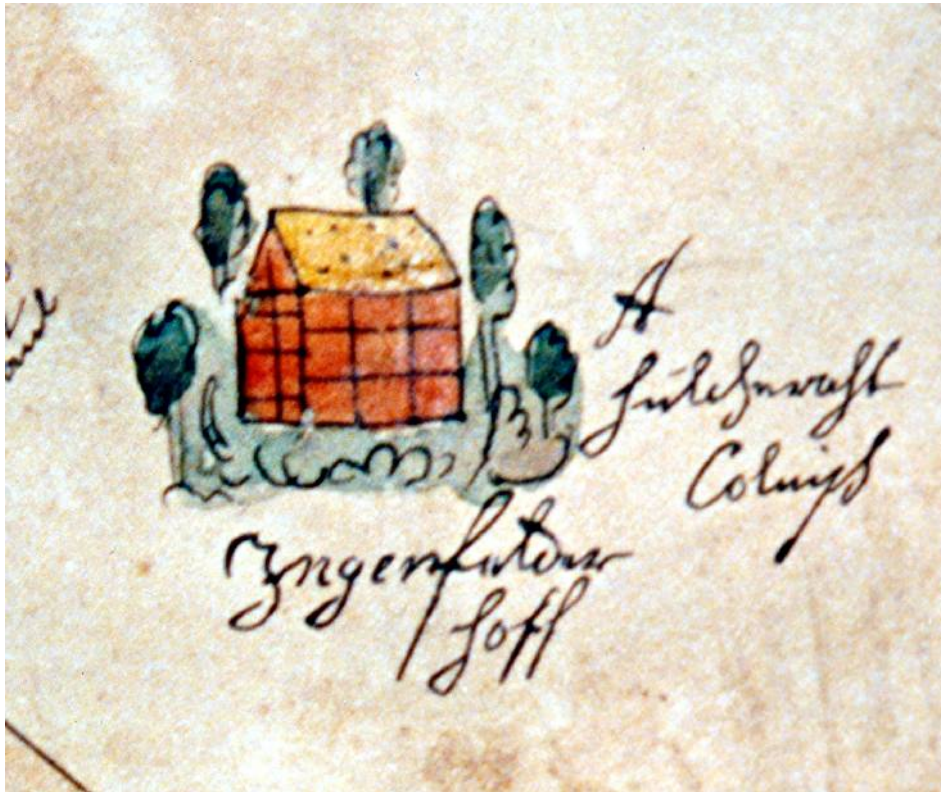 A
hülchraht
Colnisch
Ingenfelder
hoff